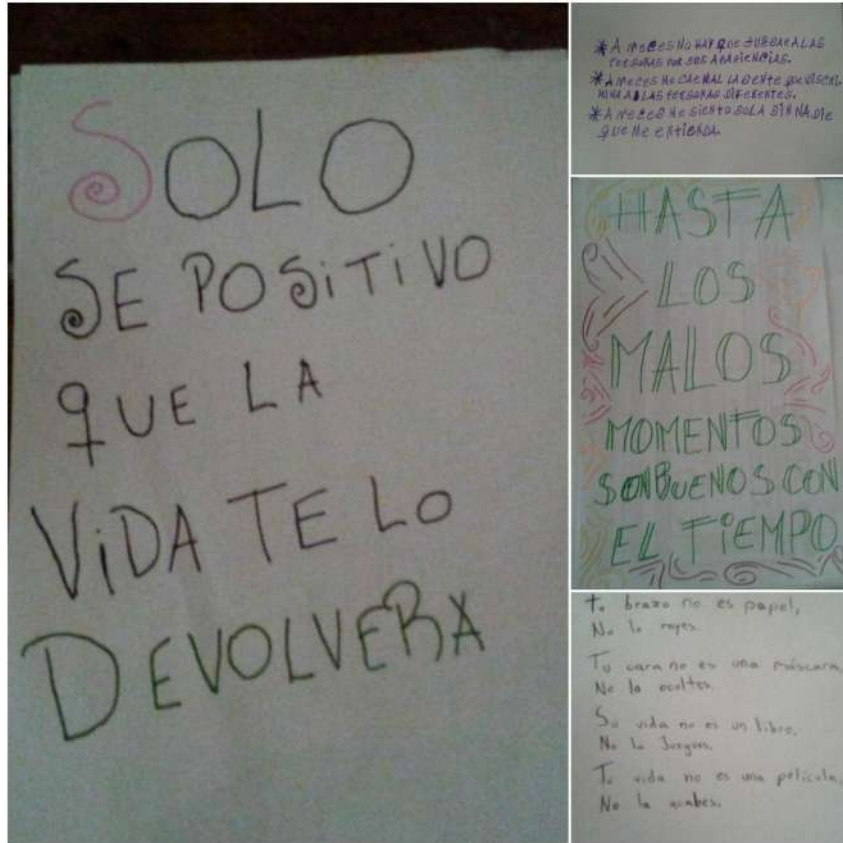 SOLO
SE POSITIVO
QUE LA
VIDA TE LO
DEVOLVERA
* A VECES NO HAY QUE JUZGAR A LAS
PERSONAS POR SUS APARIENCIAS.
* A VECES ME CAE MAL LA GENTE QUE DISCRI
MINA A LAS PERSONAS DIFERENTES.
* A VECES ME SIENTO SOLA SIN NADIE
QUE ME ENTIENDA.
HASTA
LOS
MALOS
MOMENTOS
SON BUENOS CON
EL TIEMPO
Tu brazo no es papel,
No lo rayes.
Tu cara no es una máscara,
No la ocultes.
Su vida no es un libro,
No la Juzgues.
Tu vida no es una película,
No la acabes.